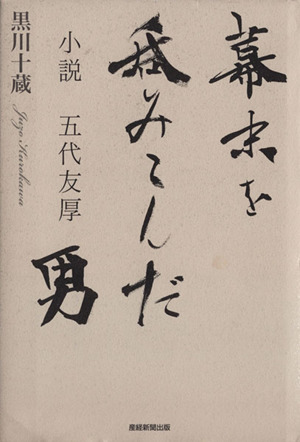 幕末を
呑みこんだ
男
小説 五代友厚
黒川十蔵
Juzo Kurokawa
産経新聞出版